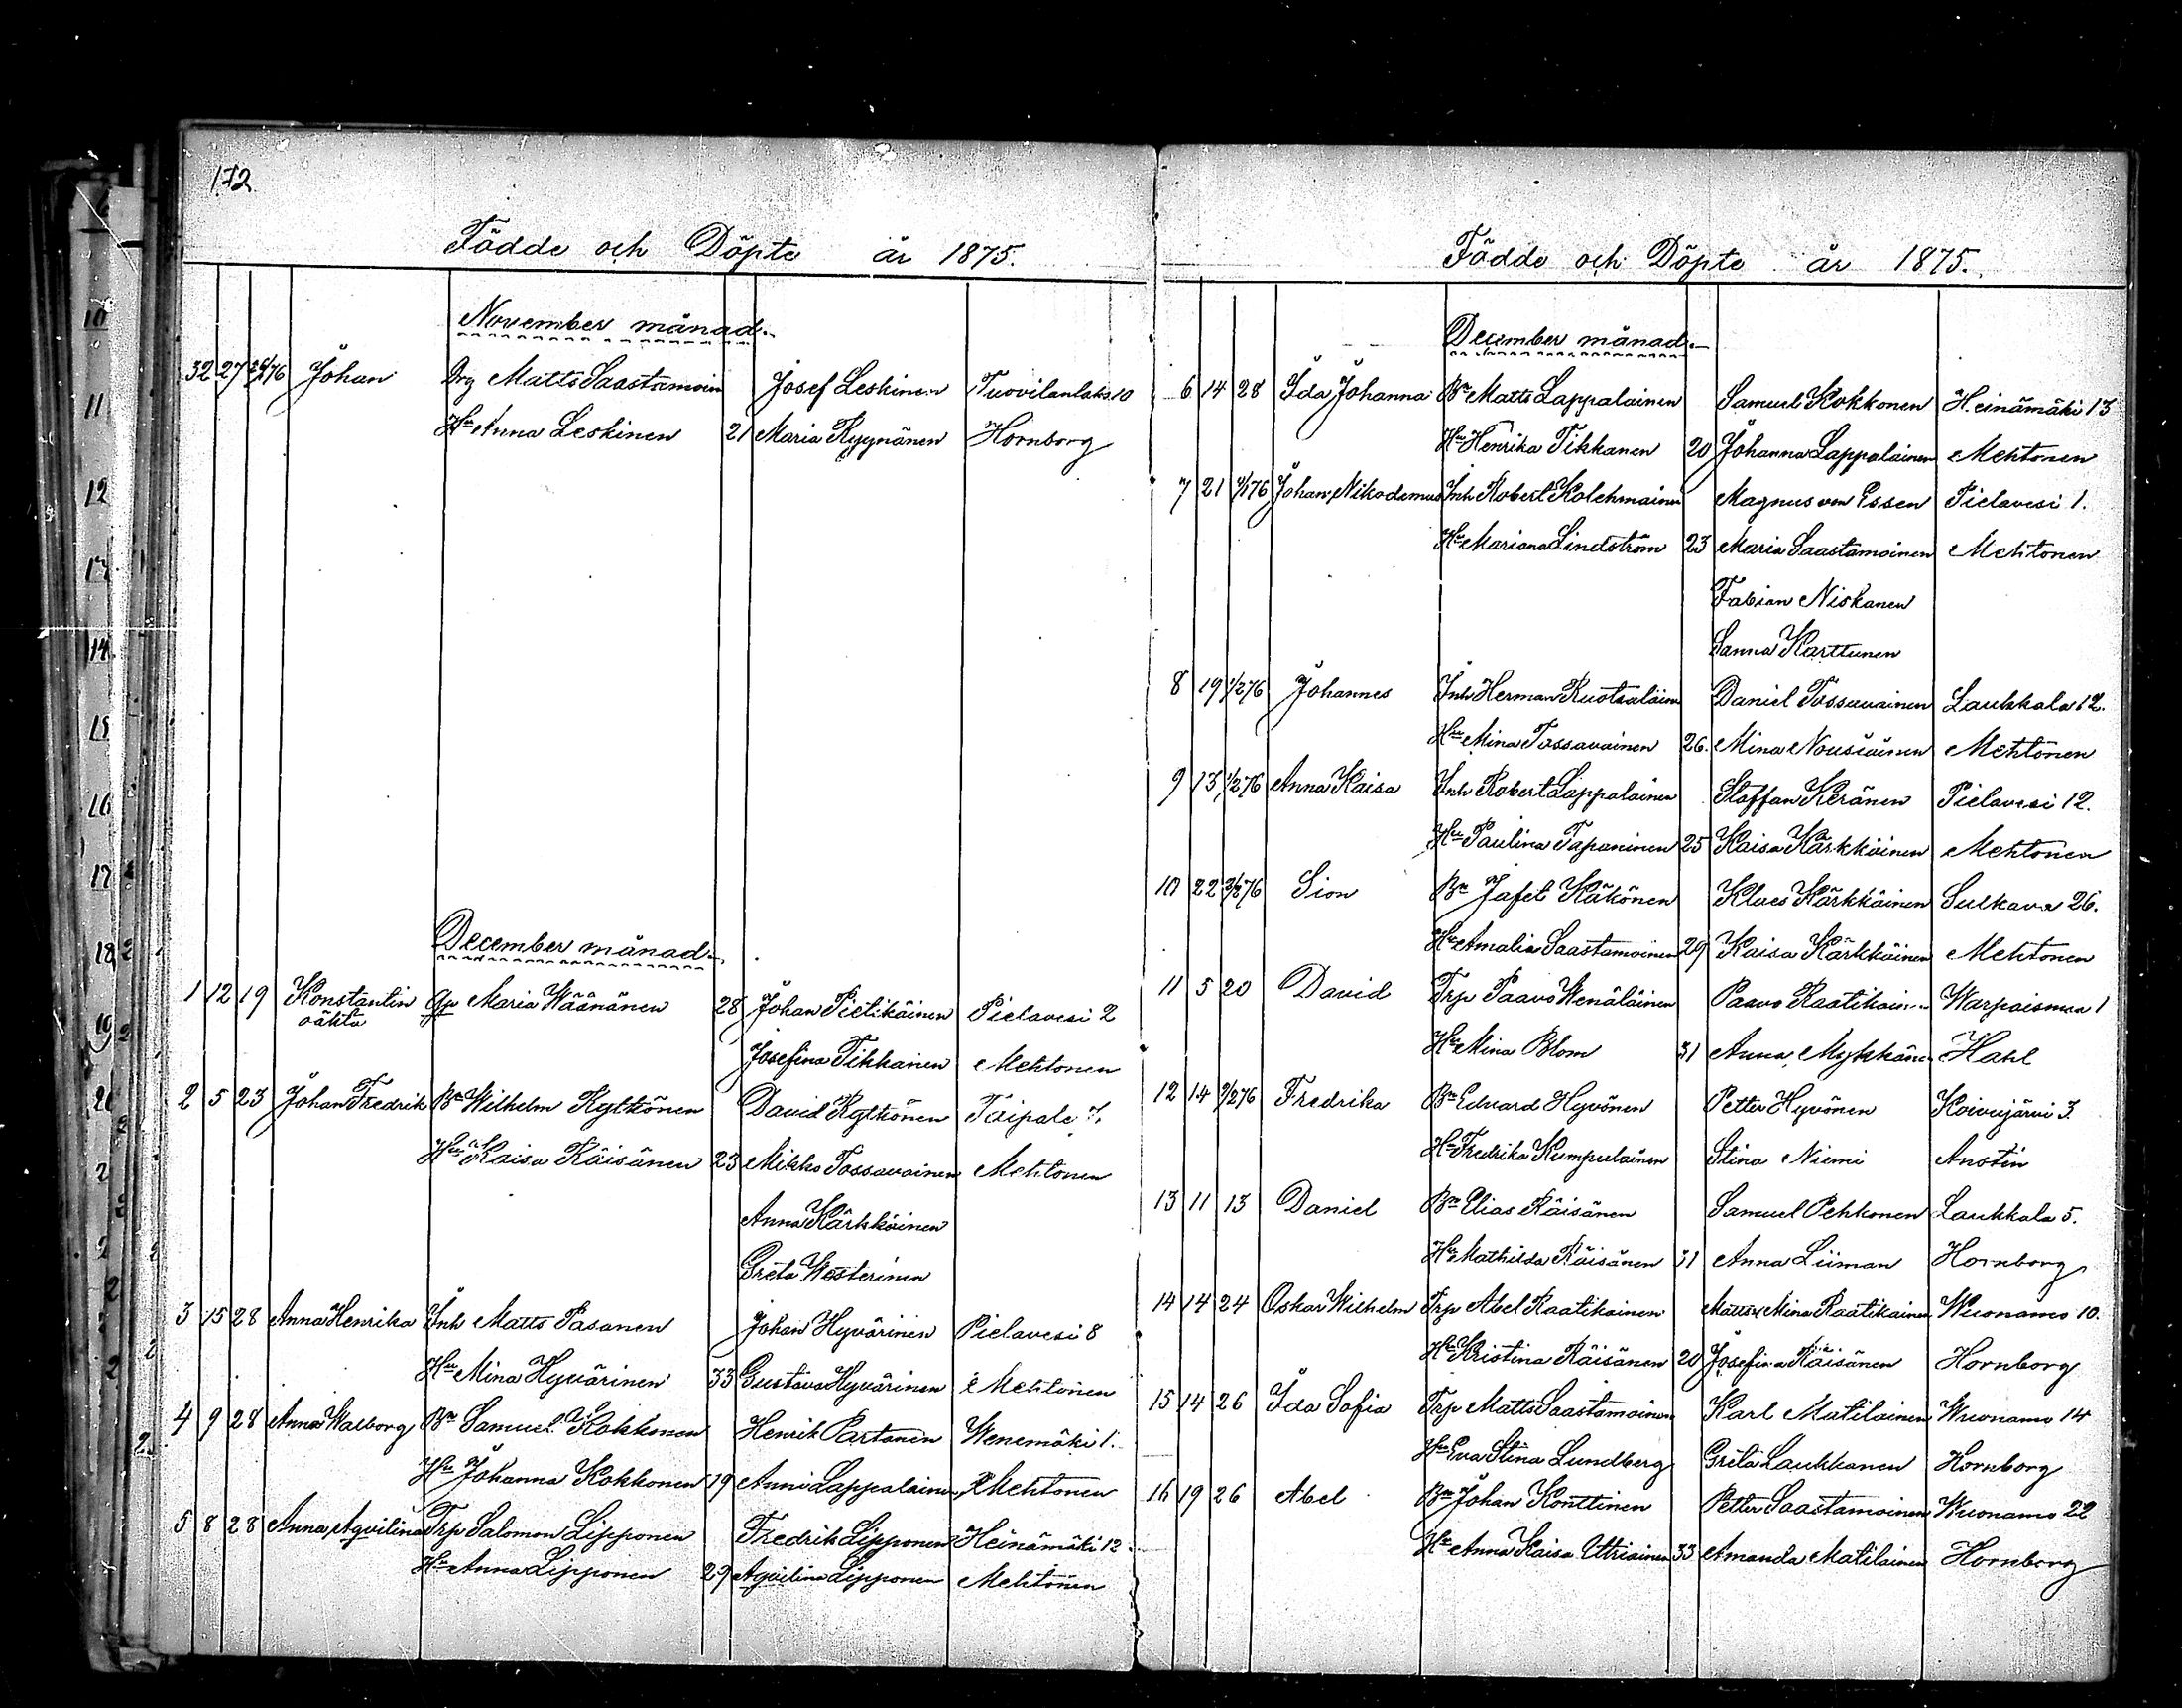 172
Födde och Döpte år 1875.
November månad.
32 27 76 Johan Drg Matts Saastamoin Josef Leskinen Tuovilanlaks 10
Hu Anna Leskinen 21 Maria Ryynänen Hornborg
December månad.
1 12 19 Konstantin Qp Maria Wäänänen 28 Johan Pietikäinen Pielavesi 2
oäkta Josefina Tikkanen Mehtonen
2 5 23 Johan Fredrik Bn Wilhelm Kytkönen David Kytkönen Taipale 7.
Hu Kaisa Räisänen 23 Mikko Tossavainen Mehtonen
Anna Kärkkäinen
Greta Westerinen
3 15 28 Anna Henrika Inh Matts Pasanen Johan Hyvärinen Pielavesi 8
Hu Mina Hyvärinen 33 Gustava Hyvärinen Mehtonen
4 9 28 Anna Walborg Bn Samuel Kokkonen Henrik Partanen Wenemäki 1.
Hu Johanna Kokkonen 19 Anni Lappalainen Mehtonen
5 8 28 Anna Aqvilina Trp Salomon Lipponen Fredrik Lipponen Heinämäki 12
Hu Anna Lipponen 29 Aqvilina Lipponen Mehtonen
Födde och Döpte år 1875.
December månad.
6 14 28 Ida Johanna Bn Matts Lappalainen Samuel Kokkonen Heinämäki 13
Hu Henrika Tikkanen 20 Johanna Lappalainen Mehtonen
7 21 1/176 Johan Nikodemus Inh Robert Kolehmainen Magnus von Essen Pielavesi 1.
Hu Mariana Lindström 23 Maria Saastamoinen Mehtonen
Fabian Niskanen
Sanna Karttunen
8 19 1/276 Johannes Inh Herman Ruotsalainen Daniel Tossavainen Laukkala 12.
Hu Mina Tossavainen 26. Mina Nousiainen Mehtonen
9 13 1/276 Anna Kaisa Inh Robert Lappalainen Staffan Keränen Pielavesi 12.
Hu Paulina Tapaninen 25 Kaisa Kärkkäinen Mehtonen
10 22 2/276 Sion Bn Jafet Käkönen Klaes Kärkkäinen Sulkava 26.
Hu Amalia Saastamoinen 29 Kaisa Kärkkäinen Mehtonen
11 5 20 David Trp Paavo Wenäläinen Paavo Raatikain Warpaisman 1
Hu Mina Blom 31 Anna Mykkänen Hahl
12 14 2/276 Fredrika Bn Edvard Hyvönen Petter Hyvönen Koivujärvi 3.
Hu Fredrika Kumpulainen Stina Niemi Anstén
13 11 13 Daniel Bn Elias Räisänen Samuel Pehkonen Laukkala 5.
Hu Mathilda Räisänen 31 Anna Liiman Hornborg
14 14 24 Oskar Wilhelm Trp Abel Raatikainen Matts & Mina Raatikainen Wuonamo 10.
Hu Kristina Räisänen 20 Josefina Räisänen Hornborg
15 14 26 Ida Sofia Trp Matts Saastamoinen Karl Matilainen Wuonamo 14
Hu Eva Stina Lundberg Greta Laukkanen Hornborg
16 19 26 Abel Bn Johan Konttinen Petter Saastamoinen Wuonamo 22
Hu Anna Kaisa Uttriainen 33 Amanda Matilainen Hornborg